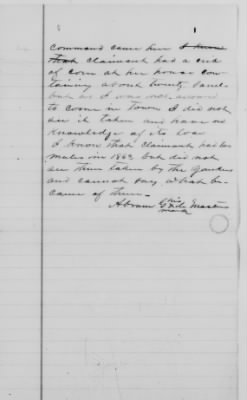 Command came her I know
that Claimant had a crib
of corn at her house con-
taining about twenty barrels
but as I was not around
to come in Town I did not
see it taken and have no
knowledge of its loss
I know that claimant had two
mules in 1863 but did not
see them taken by the Yankees
and cannot say what be-
came of them.
his
Abram Masters
mark